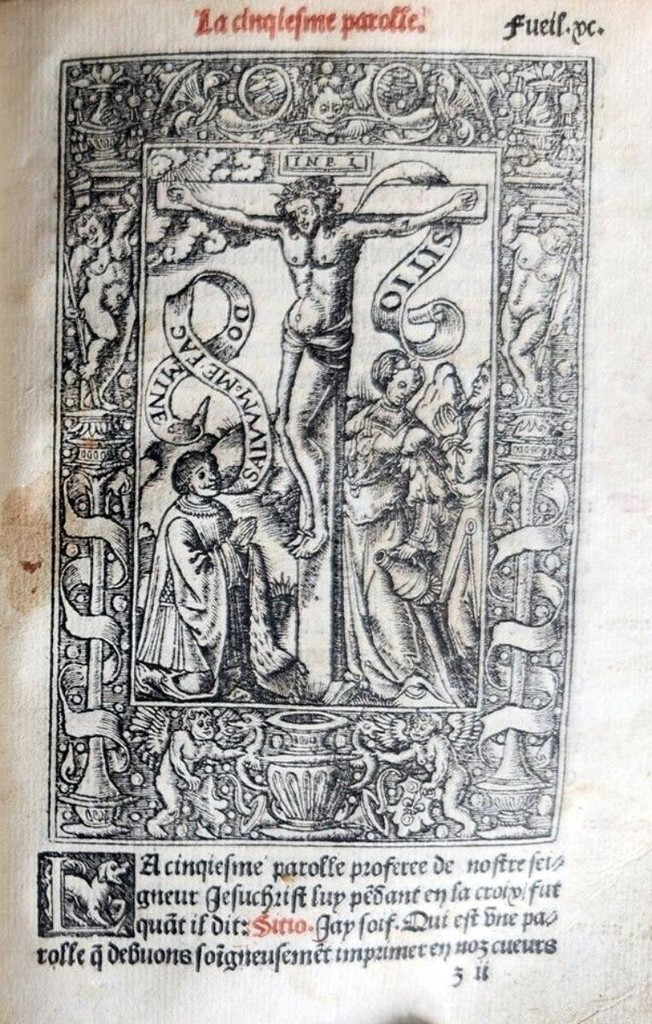 La cinqiesme parolle.
Fueil. xc.
INRI
SITIO
DO
MINE
ME FAC
SALVVM
LA cinqiesme parolle proferee de nostre sei⸗
gneur Jesuchrist luy pēdant en la croix/ fut
quāt il dit: Sitio. Jay soif. Qui est vne pa⸗
rolle q̄ debuons soigneusemēt imprimer en noz cueurs
z ii